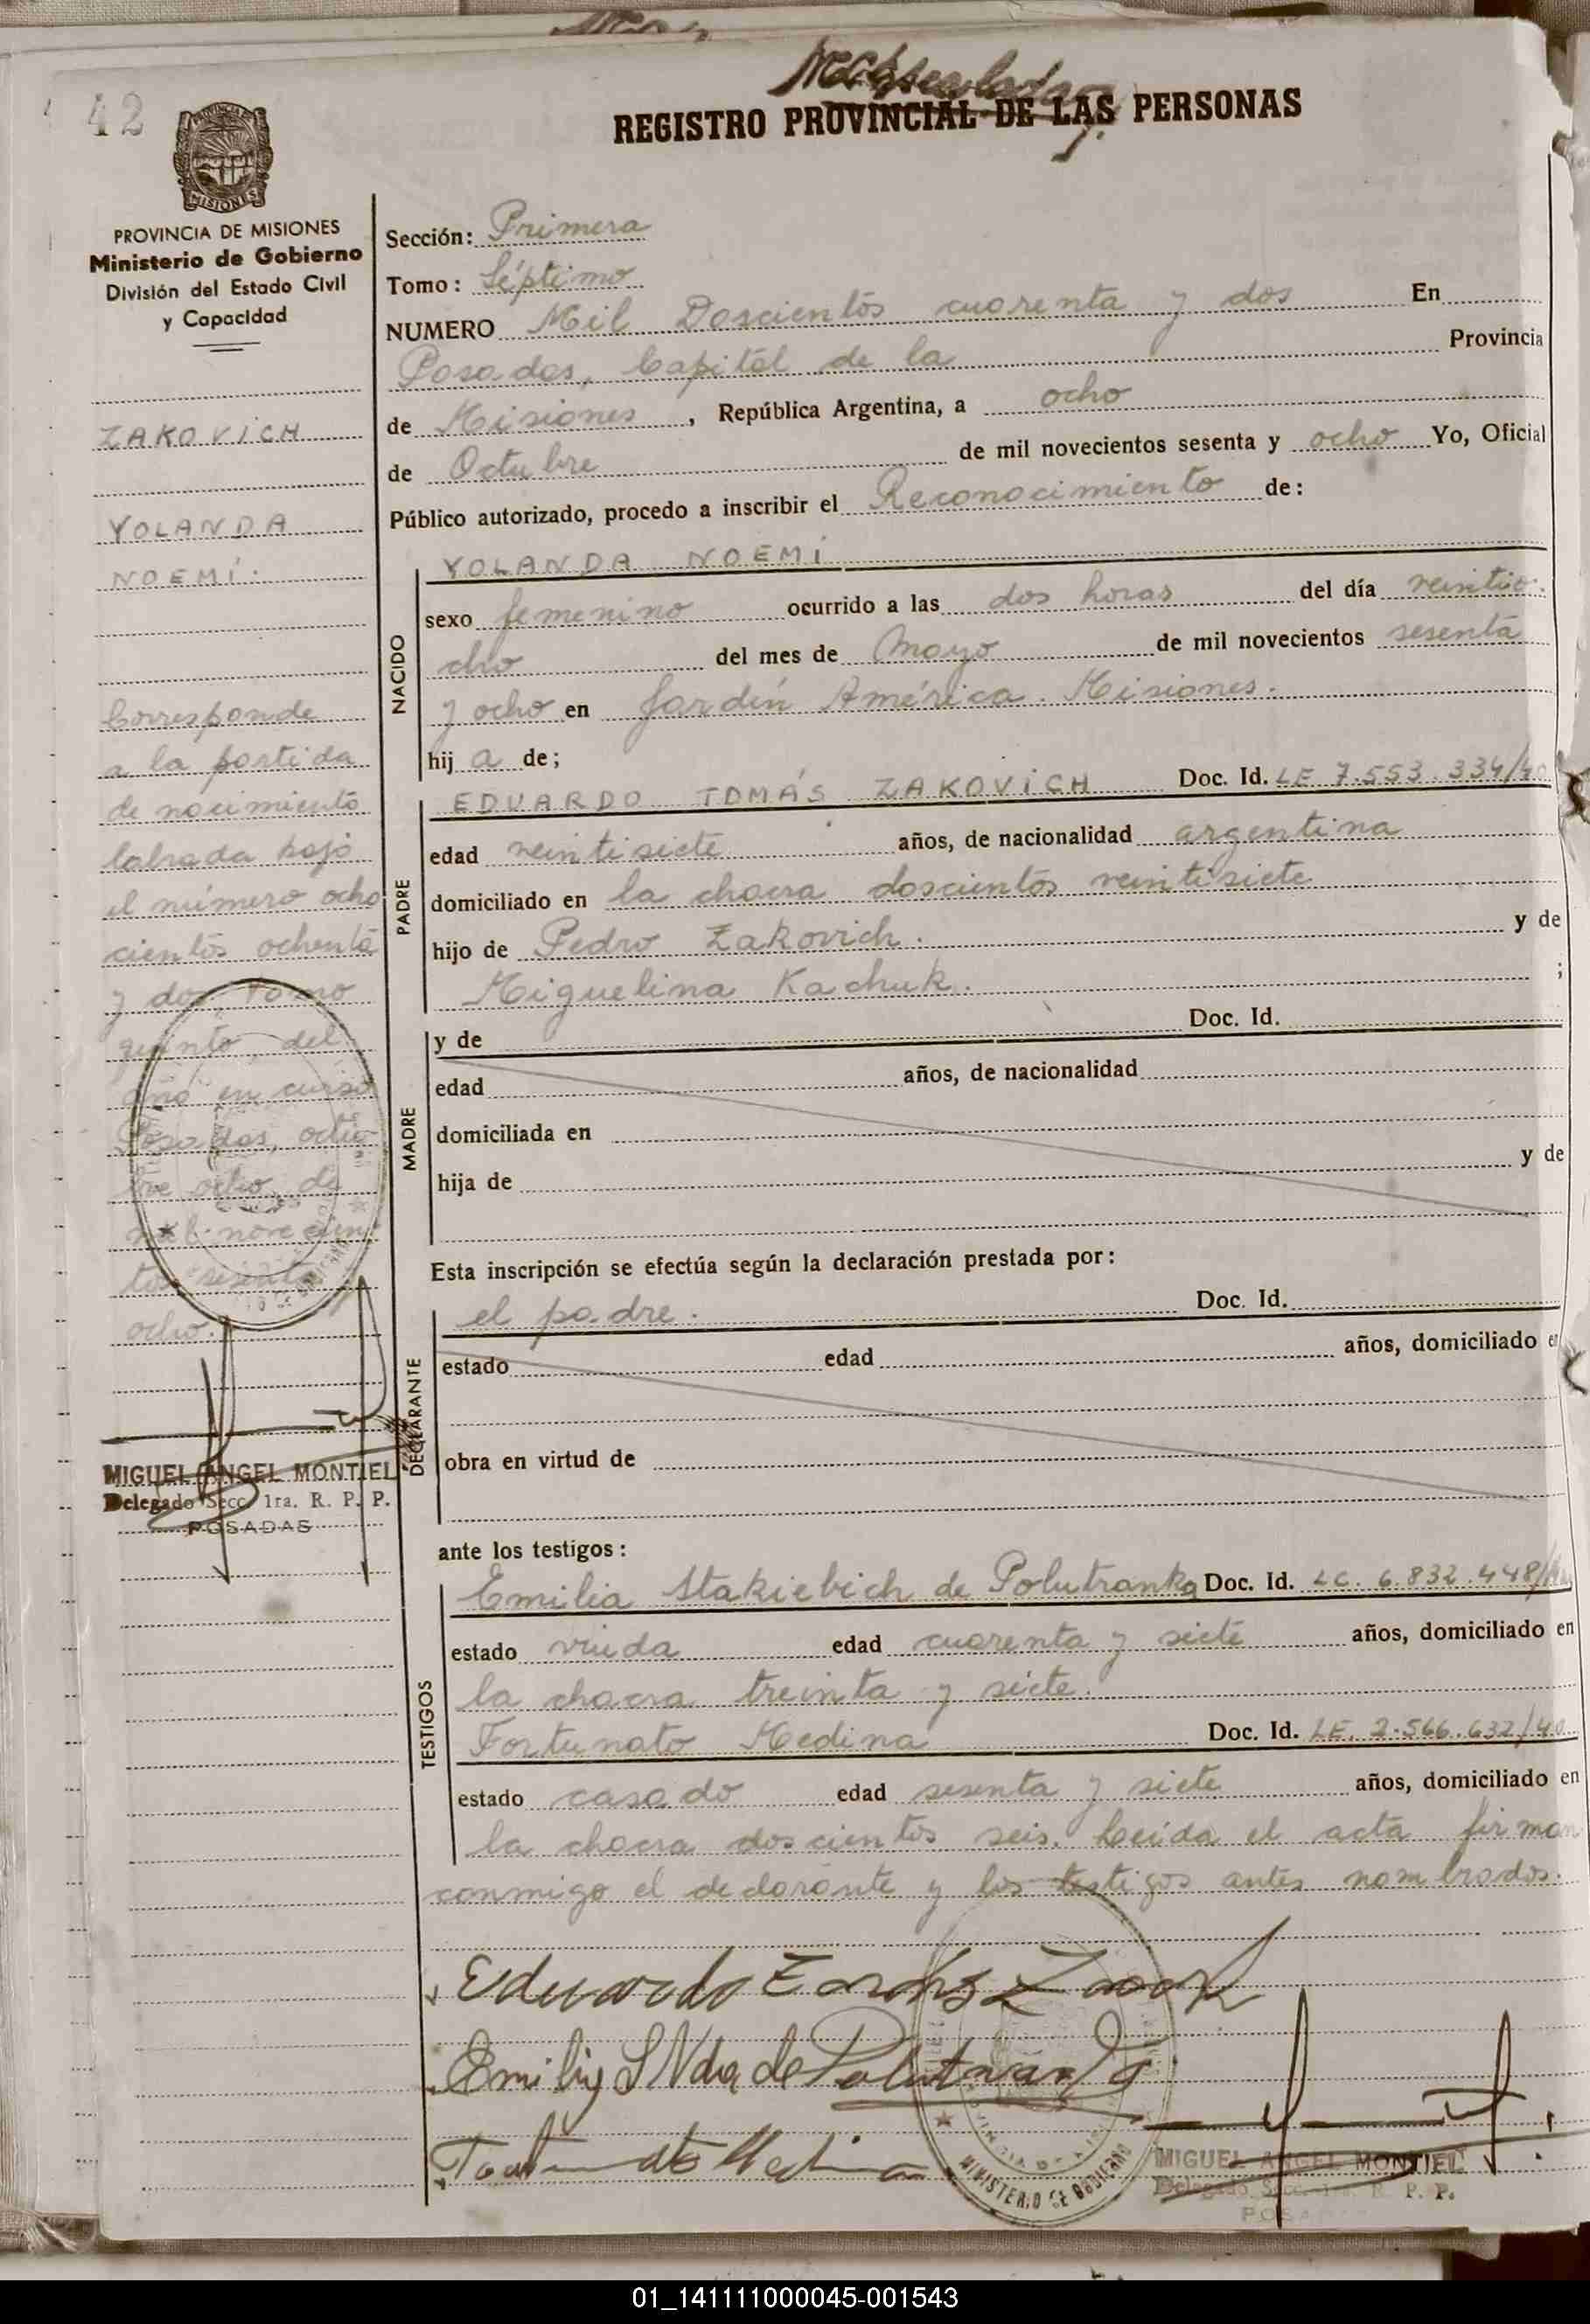 42
REGISTRO PROVINCIAL DE LAS PERSONAS
MISIONES
PROVINCIA DE MISIONES
Ministerio de Gobierno
División del Estado Civil
y Capacidad
ZAKOVICH
YOLANDA
NOEMÍ.
Corresponde
a la partida
de nacimiento
labrada bajo
el número ocho
cientos ochenta
y dos tomo
quinto, del
año en curso
Posadas, octu
bre ocho, de
mil novecien
tos sesenta
ocho.
MIGUEL ANGEL MONTIEL
Delegado Secc. 1ra. R. P. P.
POSADAS
Sección: Primera
Tomo: Séptimo
NUMERO Mil Doscientos cuarenta y dos En
Posadas, Capital de la Provincia
de Misiones, República Argentina, a ocho
de Octubre de mil novecientos sesenta y ocho Yo, Oficial
Público autorizado, procedo a inscribir el Reconocimiento de:
NACIDO
YOLANDA NOEMÍ
sexo femenino ocurrido a las dos horas del día veintio
cho del mes de Mayo de mil novecientos sesenta
y ocho en Jardín América. Misiones.
hij a de;
PADRE
EDUARDO TOMÁS ZAKOVICH Doc. Id. LE 7.553.334/40
edad veintisiete años, de nacionalidad argentina
domiciliado en la chacra doscientos veintisiete
hijo de Pedro Zakovich. y de
Miguelina Kachuk. ;
MADRE
y de Doc. Id.
edad años, de nacionalidad
domiciliada en
hija de y de
Esta inscripción se efectúa según la declaración prestada por:
DECLARANTE
el padre. Doc. Id.
estado edad años, domiciliado en
obra en virtud de
ante los testigos:
TESTIGOS
Emilia Stakiebich de Polutranka Doc. Id. LC. 6.832.448/
estado viuda edad cuarenta y siete años, domiciliado en
la chacra treinta y siete.
Fortunato Medina Doc. Id. LE. 2.566.632/40
estado casado edad sesenta y siete años, domiciliado en
la chacra doscientos seis. Leída el acta firman
conmigo el declarante y los testigos antes nombrados.
Eduardo
Emilia S Vda de Polutranka
Fortunato Medina
MINISTERIO DE GOBIERNO
MIGUEL ANGEL MONTIEL
Delegado Secc. 1ra. R. P. P.
POSADAS
01_141111000045-001543